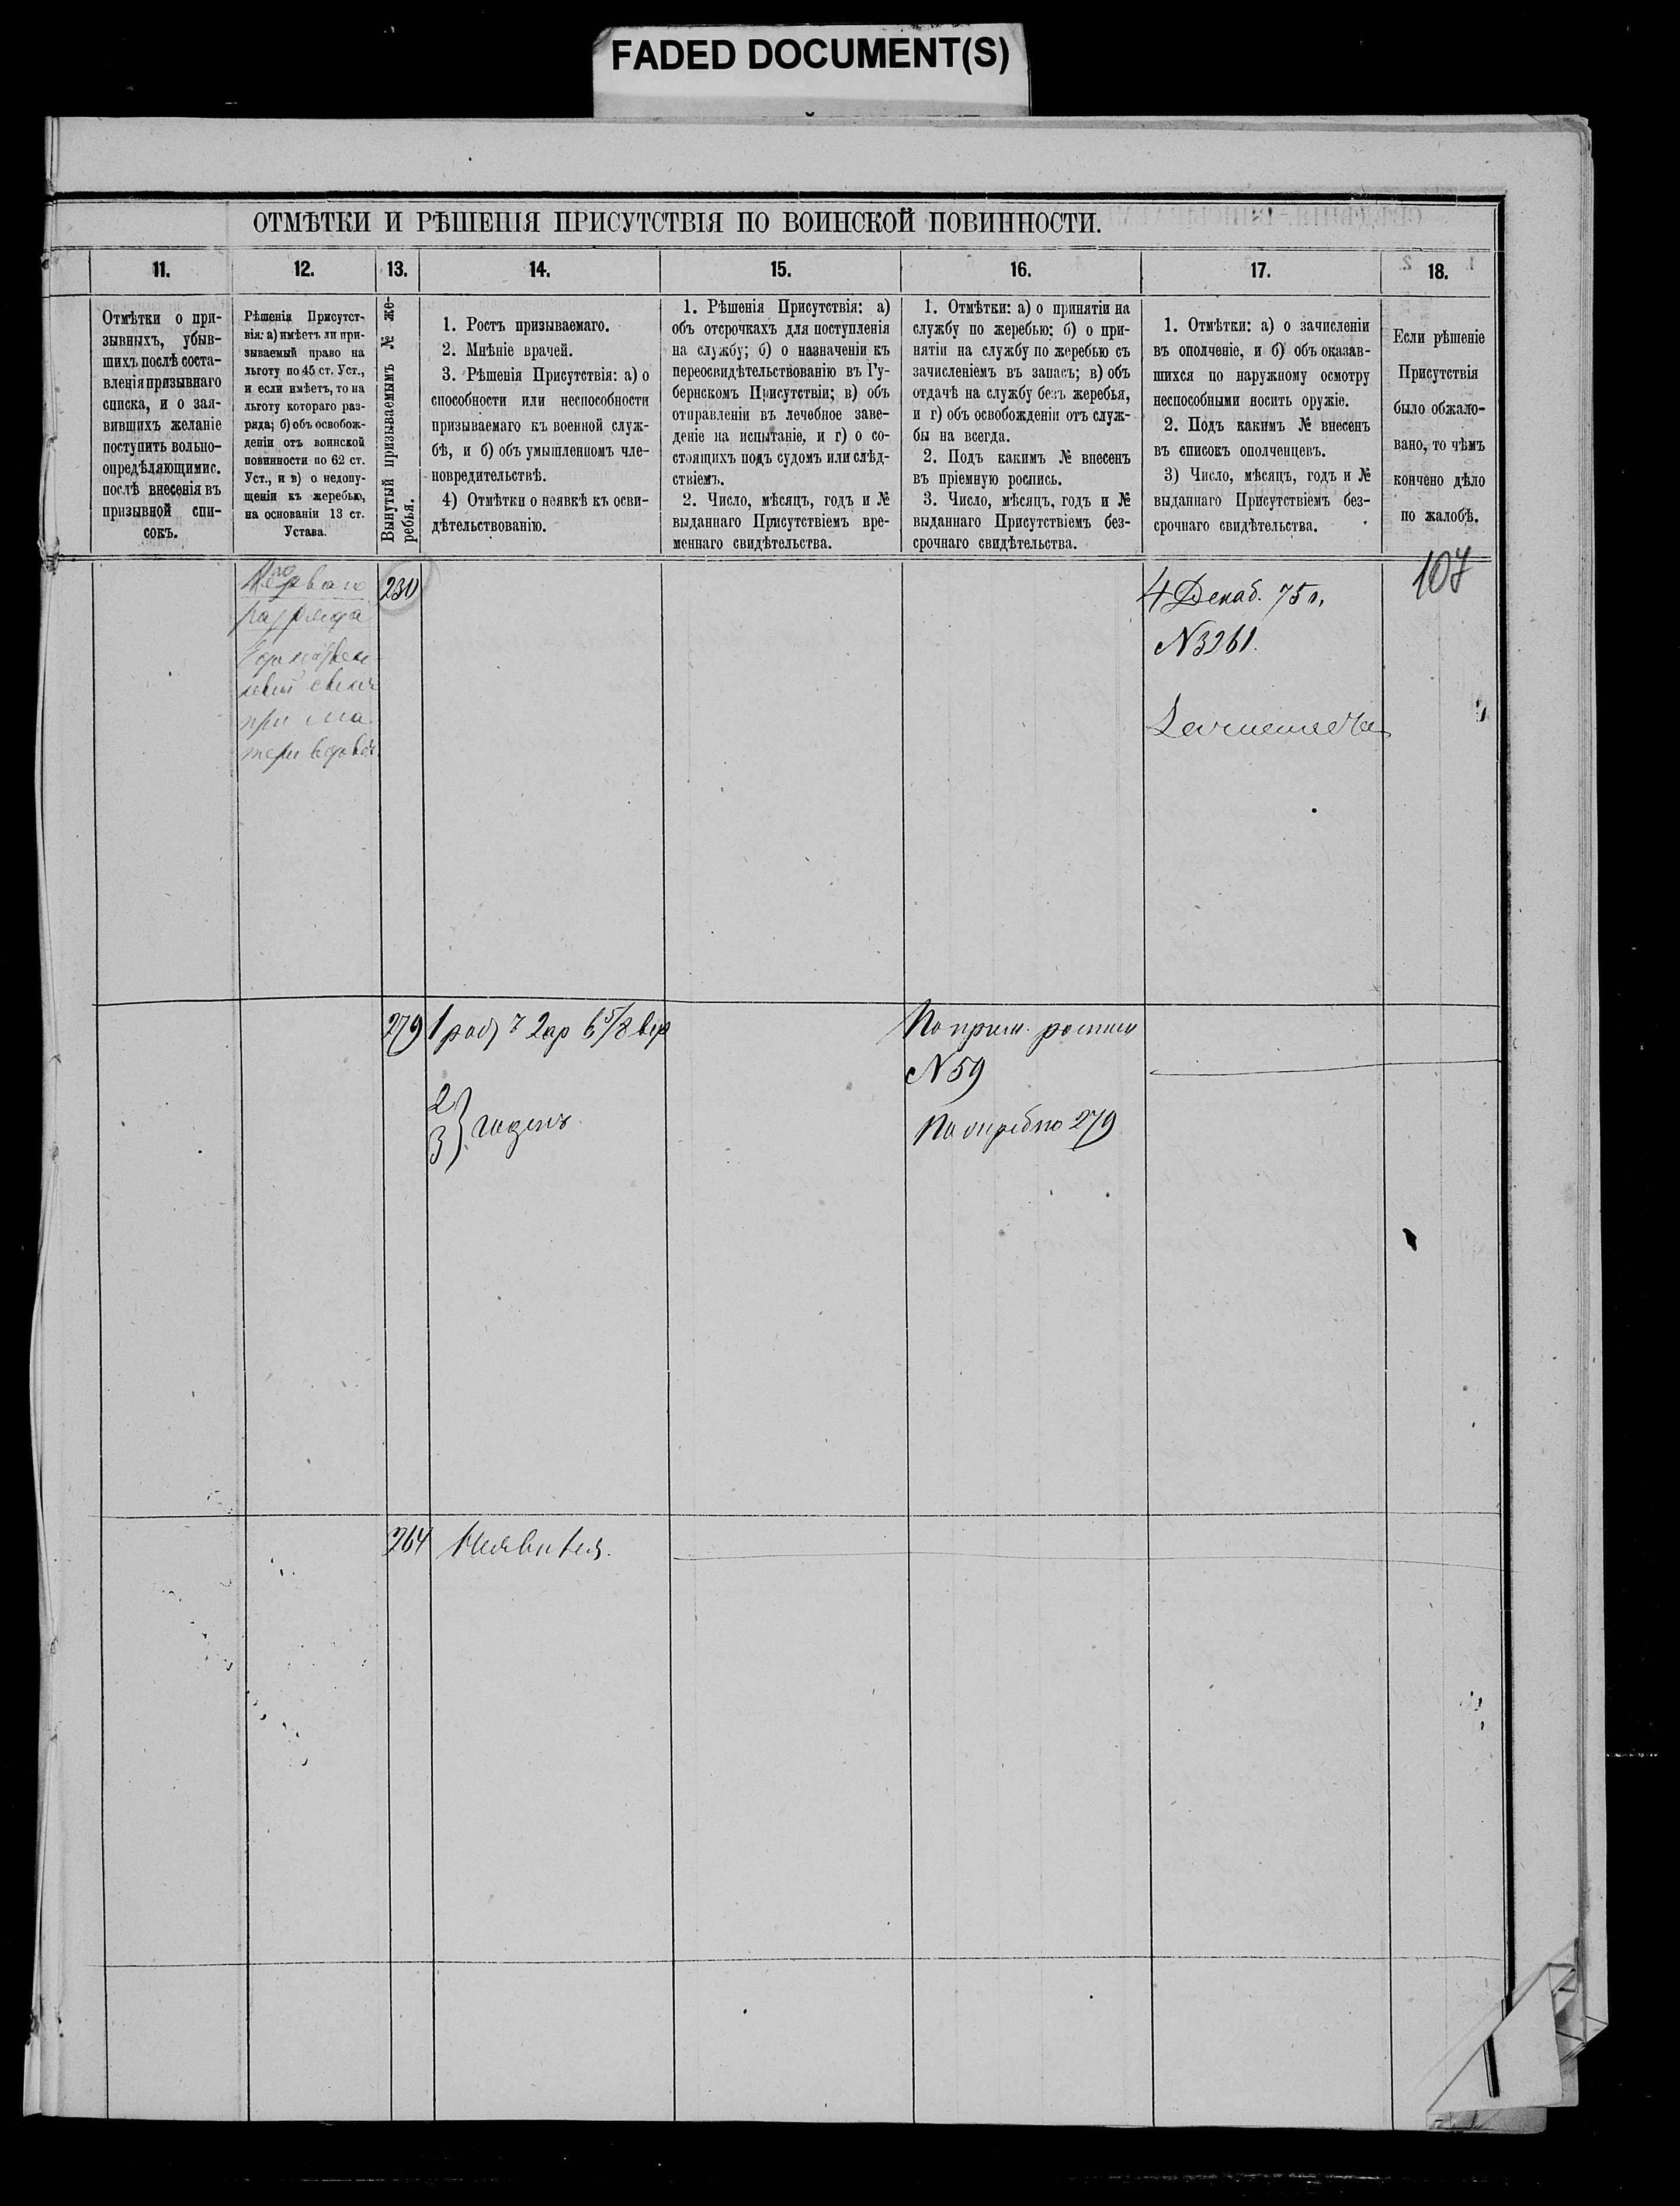 FADED DOCUMENT(S)
ОТМѢТКИ И РѢШЕНІЯ ПРИСУТСТВІЯ ПО ВОИНСКОЙ ПОВИННОСТИ.
11.
12.
13.
14.
15.
16.
17.
18.
Отмѣтки о при-
зывныхъ, убыв-
шихъ послѣ соста-
вленія призывнаго
списка, и о зая-
вившихъ желаніе
поступить вольно-
опредѣляющимис.
послѣ внесенія въ
призывной спи-
сокъ.
Рѣшенія Присутст-
вія: а) имѣетъ ли при-
зываемый право на
льготу по 45 ст. Уст.,
и если имѣетъ, то на
льготу котораго раз-
ряда; б) объ освобож-
деніи отъ воинской
повинности по 62 ст.
Уст., и в) о недопу-
щеніи къ жеребью,
на основаніи 13 ст.
Устава.
Вынутый призываемымъ № же-
ребья.
1. Ростъ призываемаго.
2. Мнѣніе врачей.
3. Рѣшенія Присутствія: а) о
способности или неспособности
призываемаго къ военной служ-
бѣ, и б) объ умышленномъ чле-
новредительствѣ.
4) Отмѣтки о неявкѣ къ осви-
дѣтельствованію.
1. Рѣшенія Присутствія: а)
объ отсрочкахъ для поступленія
на службу; б) о назначеніи къ
переосвидѣтельствованію въ Гу-
бернскомъ Присутствіи; в) объ
отправленіи въ лечебное заве-
деніе на испытаніе, и г) о со-
стоящихъ подъ судомъ или слѣд-
ствіемъ.
2. Число, мѣсяцъ, годъ и №
выданнаго Присутствіемъ вре-
меннаго свидѣтельства.
1. Отмѣтки: а) о принятіи на
службу по жеребью; б) о при-
нятіи на службу по жеребью съ
зачисленіемъ въ запасъ; в) объ
отдачѣ на службу безъ жеребья,
и г) объ освобожденіи отъ служ-
бы на всегда.
2. Подъ какимъ № внесенъ
въ пріемную роспись.
3. Число, мѣсяцъ, годъ и №
выданнаго Присутствіемъ без-
срочнаго свидѣтельства.
1. Отмѣтки: а) о зачисленіи
въ ополченіе, и б) объ оказав-
шихся по наружному осмотру
неспособными носить оружіе.
2. Подъ какимъ № внесенъ
въ списокъ ополченцевъ.
3) Число, мѣсяцъ, годъ и №
выданнаго Присутствіемъ без-
срочнаго свидѣтельства.
Если рѣшеніе
Присутствія
было обжало-
вано, то чѣмъ
кончено дѣло
по жалобѣ.
107
Перваго
разряда
Единствен-
ный сынъ
при ма-
тери вдовѣ.
230
4 Декаб. 75 г.
N 3261.
279
2 ар 6 5/8 вер
2
3
} Годенъ.
По прием. росписи
N 59
По жребію 279
264
Неявился.